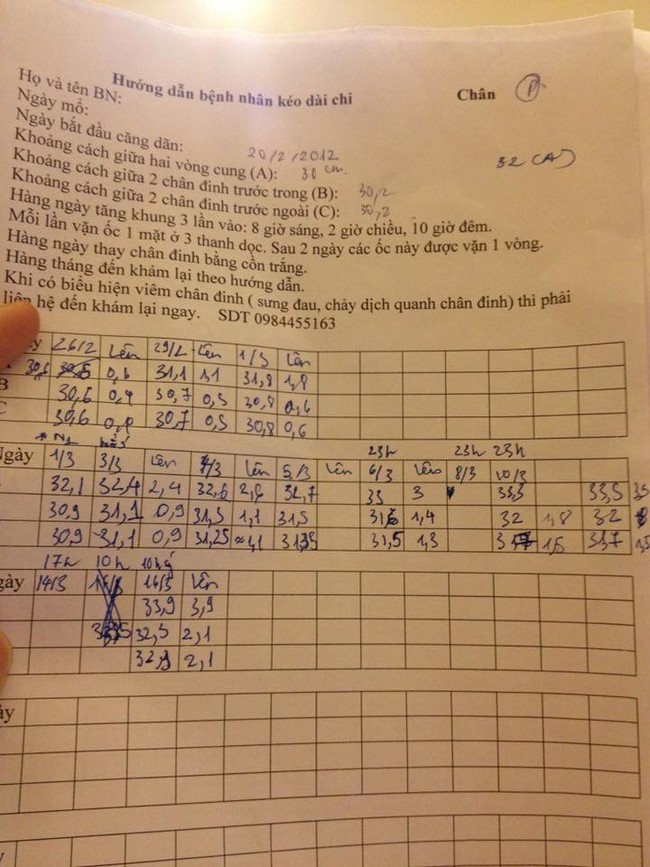 Hướng dẫn bệnh nhân kéo dài chi Chân P
Họ và tên BN:
Ngày mổ:
Ngày bắt đầu căng dãn: 20/2/2012
Khoảng cách giữa hai vòng cung (A): 30 cm. 32 (A)
Khoảng cách giữa 2 chân đinh trước trong (B): 30,2
Khoảng cách giữa 2 chân đinh trước ngoài (C): 30,2
Hàng ngày tăng khung 3 lần vào: 8 giờ sáng, 2 giờ chiều, 10 giờ đêm.
Mỗi lần vặn ốc 1 mặt ở 3 thanh dọc. Sau 2 ngày các ốc này được vặn 1 vòng.
Hàng ngày thay chân đinh bằng cồn trắng.
Hàng tháng đến khám lại theo hướng dẫn.
Khi có biểu hiện viêm chân đinh ( sưng đau, chảy dịch quanh chân đinh) thì phải
liên hệ đến khám lại ngay. SDT 0984455163
26/2 Lên 29/2 Lên 1/3 Lên
30,6 0,6 31,1 1,1 31,8 1,8
B 30,6 0,4 30,7 0,5 30,8 0,6
C 30,6 0,4 30,7 0,5 30,8 0,6
23h 23h 23h
Ngày 1/3 3/3 Lên 4/3 Lên 5/3 Lên 6/3 Lên 8/3 10/3
32,1 32,4 2,4 32,6 2,6 32,7 33 3 33,3 33,5 3,5
30,9 31,1 0,9 31,3 1,1 31,5 1,4 32 1,8 32
30,9 31,1 0,9 31,25 1,1 31,5 1,3 1,5 31,7 1,5
17h 10h
gày 14/3 16/3 Lên
33,9 3,9
32,3 2,1
32,3 2,1